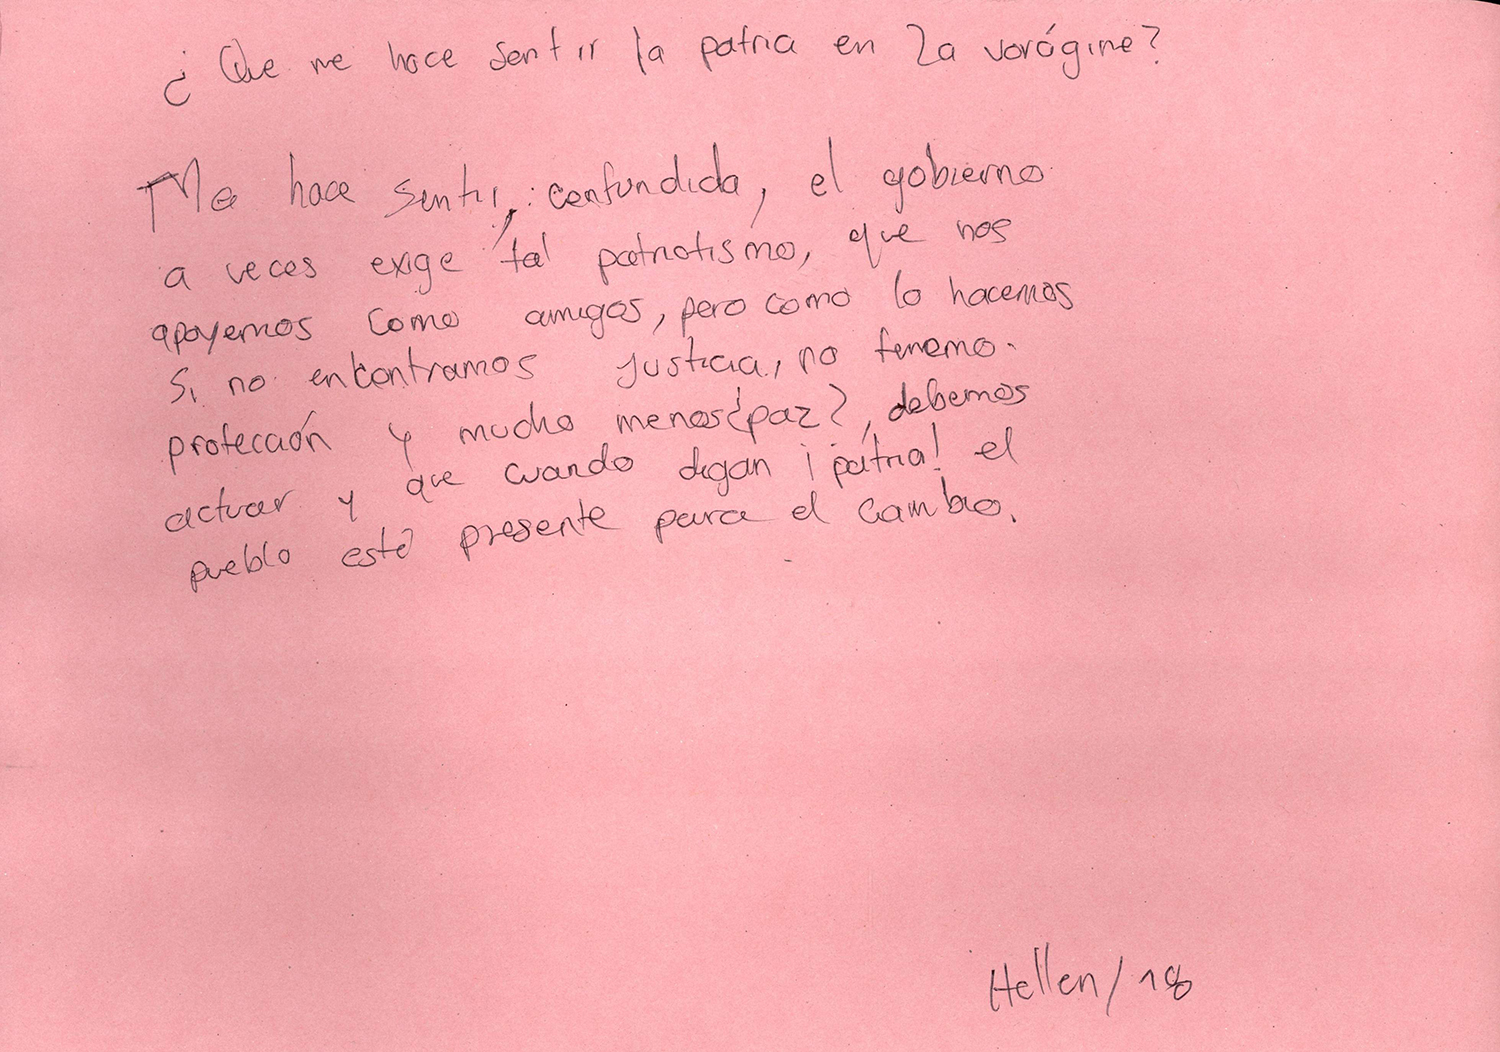 ¿Que me hace sentir la patria en La vorágine?
Me hace sentir, confundida, el gobierno
a veces exige tal patriotismo, que nos
apoyemos como amigos, pero como lo hacemos
si no encontramos justicia, no tenemo
protección y mucho menos ¿paz?, debemos
actuar y que cuando digan ¡patria! el
pueblo esté presente para el cambio.
Hellen/18